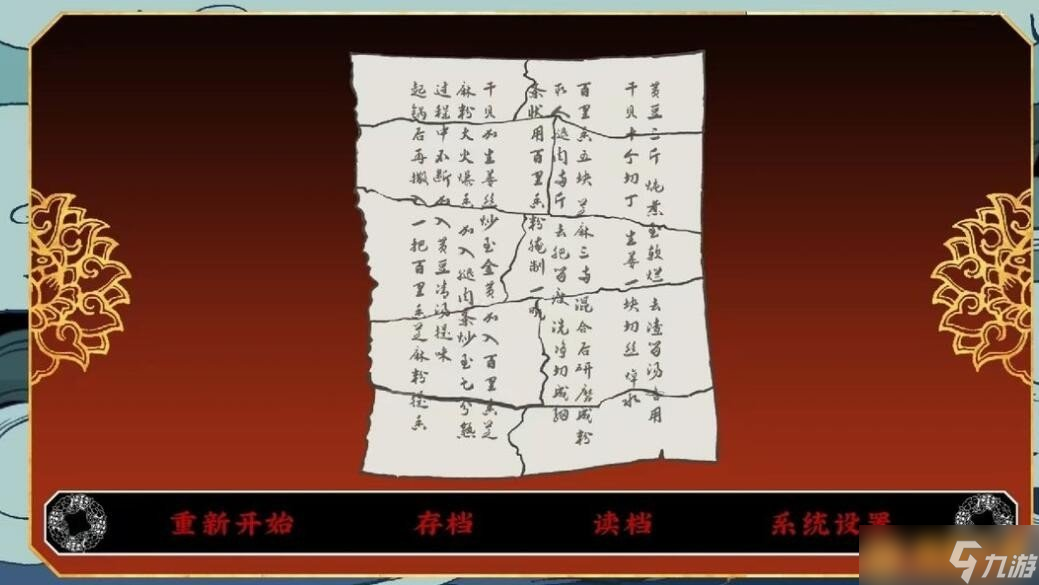 黄豆二斤 炖煮至软烂 去渣留汤备用
干贝十个切丁 生姜一块切丝 焯水
百里香五块 芝麻三两混合后研磨成粉
取人腿肉两斤 去肥留瘦 洗净切成细
条状用百里香粉腌制一晚
干贝加生姜丝炒至金黄加入百里香芝
麻粉大火爆香加入腿肉条炒至七分熟
过程中不断加入黄豆清汤提味
起锅后再撒入一把百里香芝麻粉提香
重新开始 存档 读档 系统设置
九游